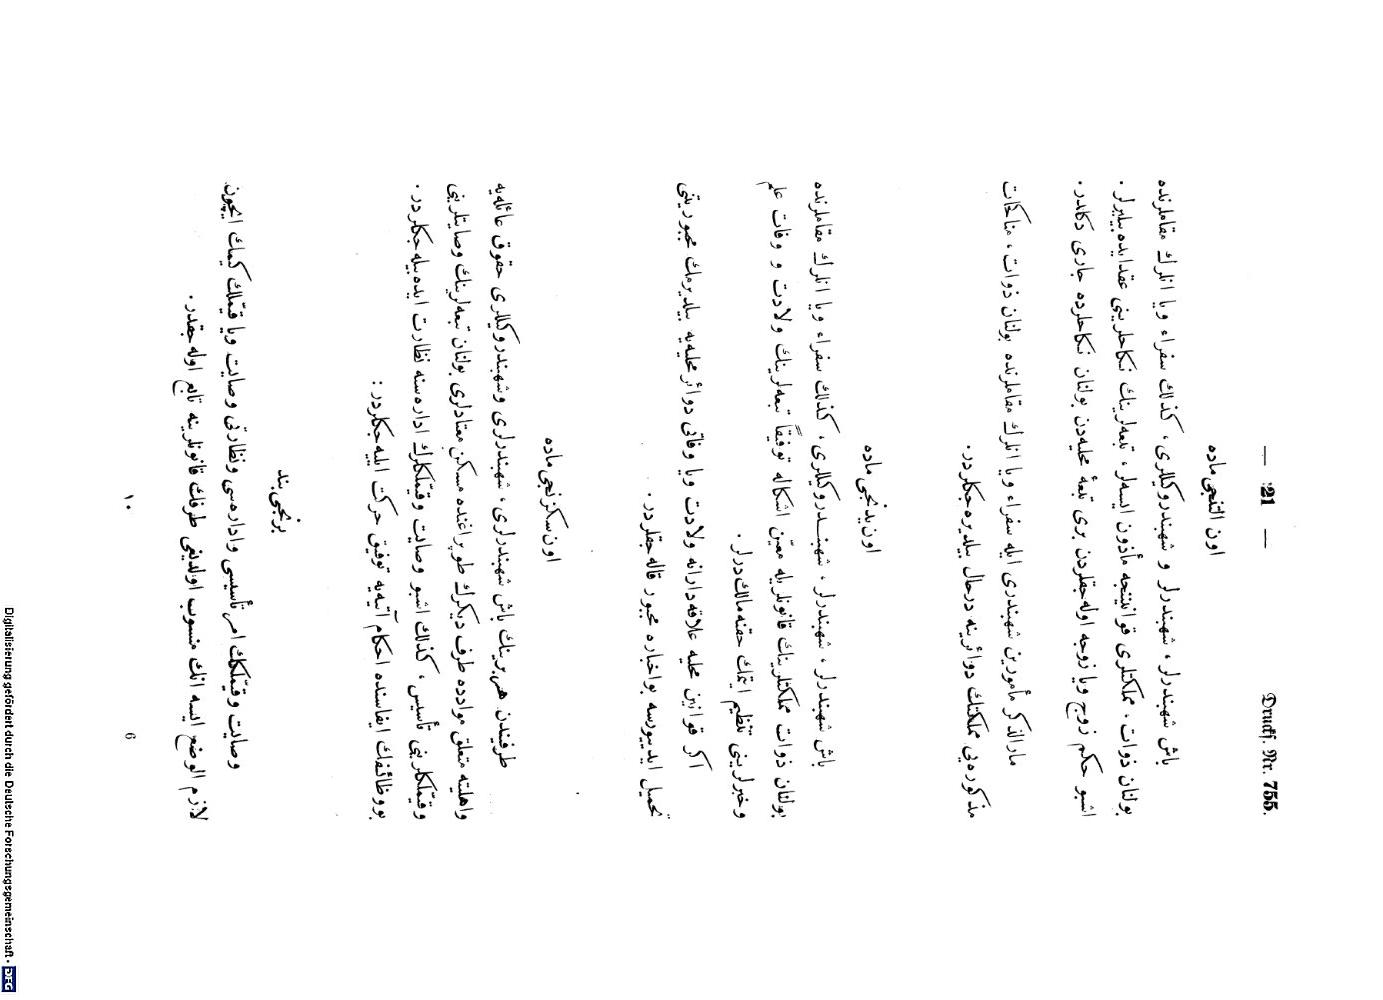 — 21 —
Druckf. Nr. 755.
اون التنجی ماده
باش شهبندرلر، شهبندرلر و شهبندر وكیللری، كذلك سفراء ویا انلرك مقاملرنده
بولنان ذوات، مملكتلری قوانیننجه مأذون ایسه‌لر، تبعه‌لرینك نكاحلرینی عقد ایده بیلیرلر.
اشبو حكم زوج ویا زوجه اوله‌جقلردن بری تبعهٔ محلیه‌دن بولنان نكاحلرده جاری دكلدر.
مارالذكر مأمورین شهبندری ایله سفراء ویا انلرك مقاملرنده بولنان ذوات، مناكحات
مذكوره‌یی مملكتك دوائرینه درحال بیلدیره جكلردر.
اون یدنجی ماده
باش شهبندرلر، شهبندرلر، شهبندر وكیللری، كذلك سفراء ویا انلرك مقاملرنده
بولنان ذوات مملكتلرینك قانونلریله معیّن اشكاله توفیقاً تبعه‌لرینك ولادت و وفات علم
وخبرلرینی تنظیم ایتمك حقنه مالكدرلر.
اكر قوانین محلیه علاقه‌دارانه ولادت ویا وفاتی دوائر محلیه‌یه بیلدیرمك مجبوریتنی
تحمیل ایدیورسه بو اخباره مجبور قاله‌جقلردر.
اون سكزنجی ماده
طرفیندن هر برینك باش شهبندرلری، شهبندرلری وشهبندر وكیللری حقوق عائله‌یه
واهلیته متعلق موادده طرف دیكرك طوپراغنده مسكن معتادلری بولنان تبعه‌لرینك وصایتلرینی
وقیملكلرینی تأسیس، كذلك اشبو وصایت وقیملكلرك اداره‌سنه نظارت ایده‌بیله‌جكلردر.
بو وظائفك ایفاسنده احكام آتیه‌یه توفیق حركت ایلیه‌جكلردر:
برنجی بند
وصایت وقیملكك امر تأسیسی واداره‌سی ونظارتی وصایت ویا قیملك كیمك ایچون
لازم الوضع ایسه انك منسوب اولدیغی طرفك قانونلرینه تابع اوله‌جقدر.
١٠
6
Digitalisierung gefördert durch die Deutsche Forschungsgemeinschaft - DFG